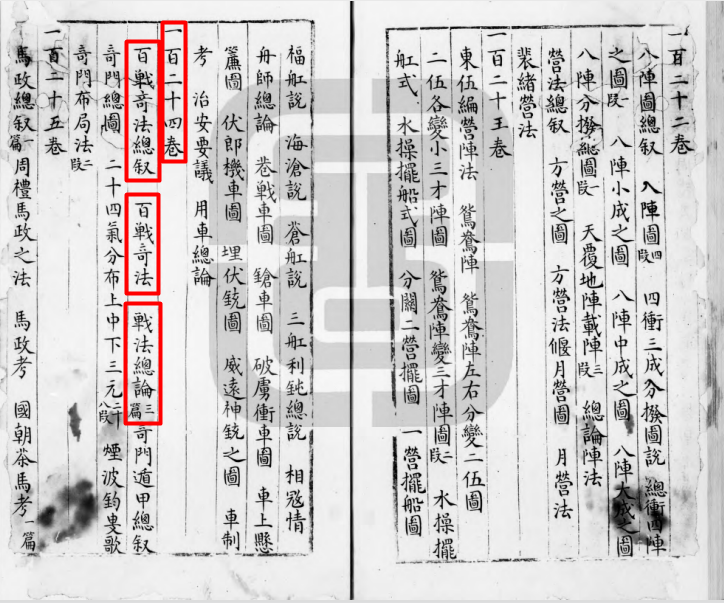 一百二十二卷
八陣圖總叙 八陣圖四段 四衝三成分撥圖說 總衝四陣
之圖一段 八陣小成之圖 八陣中成之圖 八陣大成之圖
八陣分撥總圖一段 天覆地陣載陣三段 總論陣法
營法總叙 方營之圖 方營法偃月營圖 月營法
裴緒營法
一百二十三卷
東伍編營陣法 鴛鴦陣 鴛鴦陣左右分變二伍圖
二伍各變小三才陣圖 鴛鴦陣變三才陣圖二段 水操擺
舡式 水操擺船式圖 分關二營擺圖 一營擺船圖
福舡說 海滄說 蒼船說 三舡利鈍總說 相寇情
舟師總論 巷戰車圖 鎗車圖 破虜衝車圖 車上懸
簾圖 伏郎機車圖 埋伏銃圖 威遠神銃之圖 車制
考 治安要議 用車總論
一百二十四卷
百戰奇法總叙 百戰奇法 戰法總論三篇 奇門遁甲總叙
奇門總圖 二十四氣分布上中下三元十八段 煙波釣叟歌
奇門布局法二段
一百二十五卷
馬政總叙一篇 周禮馬政之法 馬政考 國朝茶馬考一篇